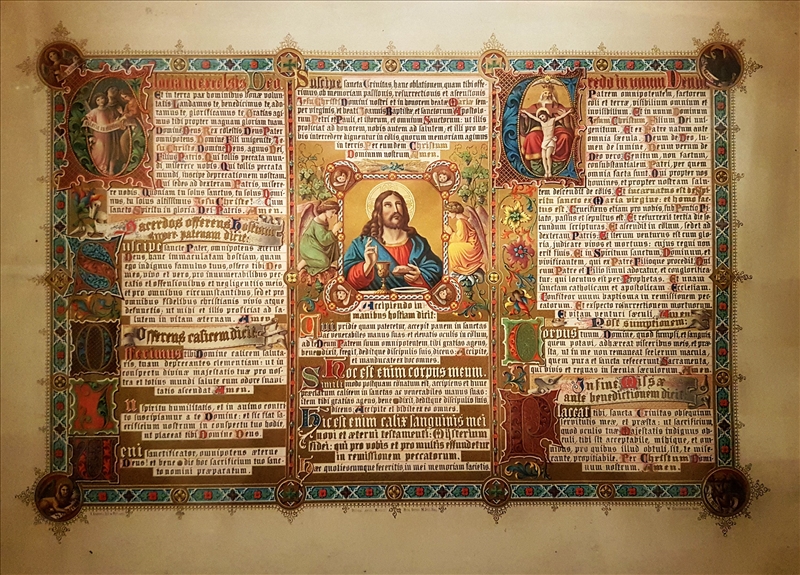 Gloria in excelsis Deo.
Et in terra pax hominibus bonæ volun-
tatis. Laudamus te, benedicimus te, ado-
ramus te, glorificamus te. Gratias agi-
mus tibi propter magnam gloriam tuam.
Domine Deus, Rex cœlestis, Deus Pater
omnipotens. Domine Fili unigenite Je-
su Christe. Domine Deus, agnus Dei,
Filius Patris. Qui tollis peccata mun-
di, miserere nobis. Qui tollis peccata
mundi, suscipe deprecationem nostram.
Qui sedes ad dexteram Patris, misere-
re nobis. Quoniam tu solus sanctus, tu solus Domi-
nus, tu solus altissimus, Jesu Christe. Cum
sancto Spiritu in gloria Dei Patris. Amen.
Sacerdos offerens Hostiam
super patenam dicit:
Suscipe sancte Pater, omnipotens æterne
Deus hanc immaculatam hostiam, quam
ego indignus famulus tuus, offero tibi Deo
meo, vivo et vero, pro innumerabilibus pec-
catis et offensionibus et negligentiis meis,
et pro omnibus circumstantibus, sed et pro
omnibus fidelibus christianis vivis atque
defunctis, ut mihi et illis proficiat ad sa-
lutem in vitam æternam. Amen.
Offerens calicem dicit:
Offerimus tibi Domine calicem saluta-
ris, tuam deprecantes clementiam: ut in
conspectu divinæ majestatis tuæ pro nos-
tra et totius mundi salute cum odore suavi-
tatis ascendat. Amen.
In spiritu humilitatis, et in animo contri-
to suscipiamur a te Domine, et sic fiat sa-
crificium nostrum in conspectu tuo hodie,
ut placeat tibi Domine Deus.
Veni sanctificator, omnipotens æterne
Deus et benedic hoc sacrificium tuo sanc-
to nomini præparatum.
Suscipe, sancta Trinitas, hanc oblationem, quam tibi offe-
rimus, ob memoriam passionis, resurrectionis et ascensionis
Jesu Christi Domini nostri et in honorem beatæ Mariæ sem-
per virginis, et beati Joannis Baptistæ, et sanctorum Apostolo-
rum Petri et Pauli, et istorum, et omnium Sanctorum, ut illis
proficiat ad honorem, nobis autem ad salutem, et illi pro no-
bis intercedere dignentur in cœlis, quorum memoriam agimus
in terris. Per eumdem Christum
Dominum nostrum. Amen.
Accipiendo in
manibus hostiam dicit:
Qui pridie quam pateretur, accepit panem in sanctas
ac venerabiles manus suas, et elevatis oculis in cœlum,
ad te Deum Patrem suum omnipotentem, tibi gratias agens,
benedixit, fregit, deditque discipulis suis, dicens: Accipite,
et manducate ex hoc omnes.
Hoc est enim corpus meum.
Simili modo postquam cœnatum est, accipiens et hunc
præclarum calicem in sanctas ac venerabiles manus suas:
item tibi gratias agens, benedixit, deditque discipulis suis,
dicens: Accipite et bibite ex eo omnes.
Hic est enim calix sanguinis mei
novi et æterni testamenti: Mysterium
fidei: qui pro vobis et pro multis effundetur
in remissionem peccatorum.
Hæc quotiescumque feceritis, in mei memoriam facietis.
Credo in unum Deum
Patrem omnipotentem, factorem
cœli et terræ, visibilium omnium et
invisibilium. Et in unum Dominum
Jesum Christum, Filium Dei uni-
genitum. Et ex Patre natum ante
omnia sæcula. Deum de Deo, lu-
men de lumine, Deum verum de
Deo vero. Genitum, non factum,
consubstantialem Patri, per quem
omnia facta sunt. Qui propter nos
homines, et propter nostram salu-
tem descendit de cœlis. Et incarnatus est de Spi-
ritu sancto ex Maria virgine: et homo fac-
tus est. Crucifixus etiam pro nobis, sub Pontio Pi-
lato, passus et sepultus est. Et resurrexit tertia die se-
cundum scripturas. Et ascendit in cœlum, sedet ad
dexteram Patris. Et iterum venturus est cum glo-
ria, judicare vivos et mortuos, cujus regni non
erit finis. Et in Spiritum sanctum Dominum et
vivificantem, qui ex Patre Filioque procedit. Qui
cum Patre et Filio simul adoratur, et conglorifica-
tur: qui locutus est per Prophetas. Et unam
sanctam catholicam et apostolicam Ecclesiam.
Confiteor unum baptisma in remissionem pec-
catorum. Et exspecto resurrectionem mortuorum.
Et vitam venturi sæculi. Amen.
Post sumptionem:
Corpus tuum, Domine, quod sumpsi, et sanguis,
quem potavi, adhæreat visceribus meis, et præ-
sta, ut in me non remaneat scelerum macula,
quem pura et sancta refecerunt Sacramenta,
qui vivis et regnas in sæcula sæculorum. Amen.
In fine Missæ
ante benedictionem dicit:
Placeat tibi, sancta Trinitas, obsequium
servitutis meæ, et præsta, ut sacrificium
quod oculis tuæ Majestatis indignus ob-
tuli, tibi sit acceptabile, mihique, et om-
nibus, pro quibus illud obtuli, sit, te mise-
rante, propitiabile. Per Christum Domi-
num nostrum. Amen.